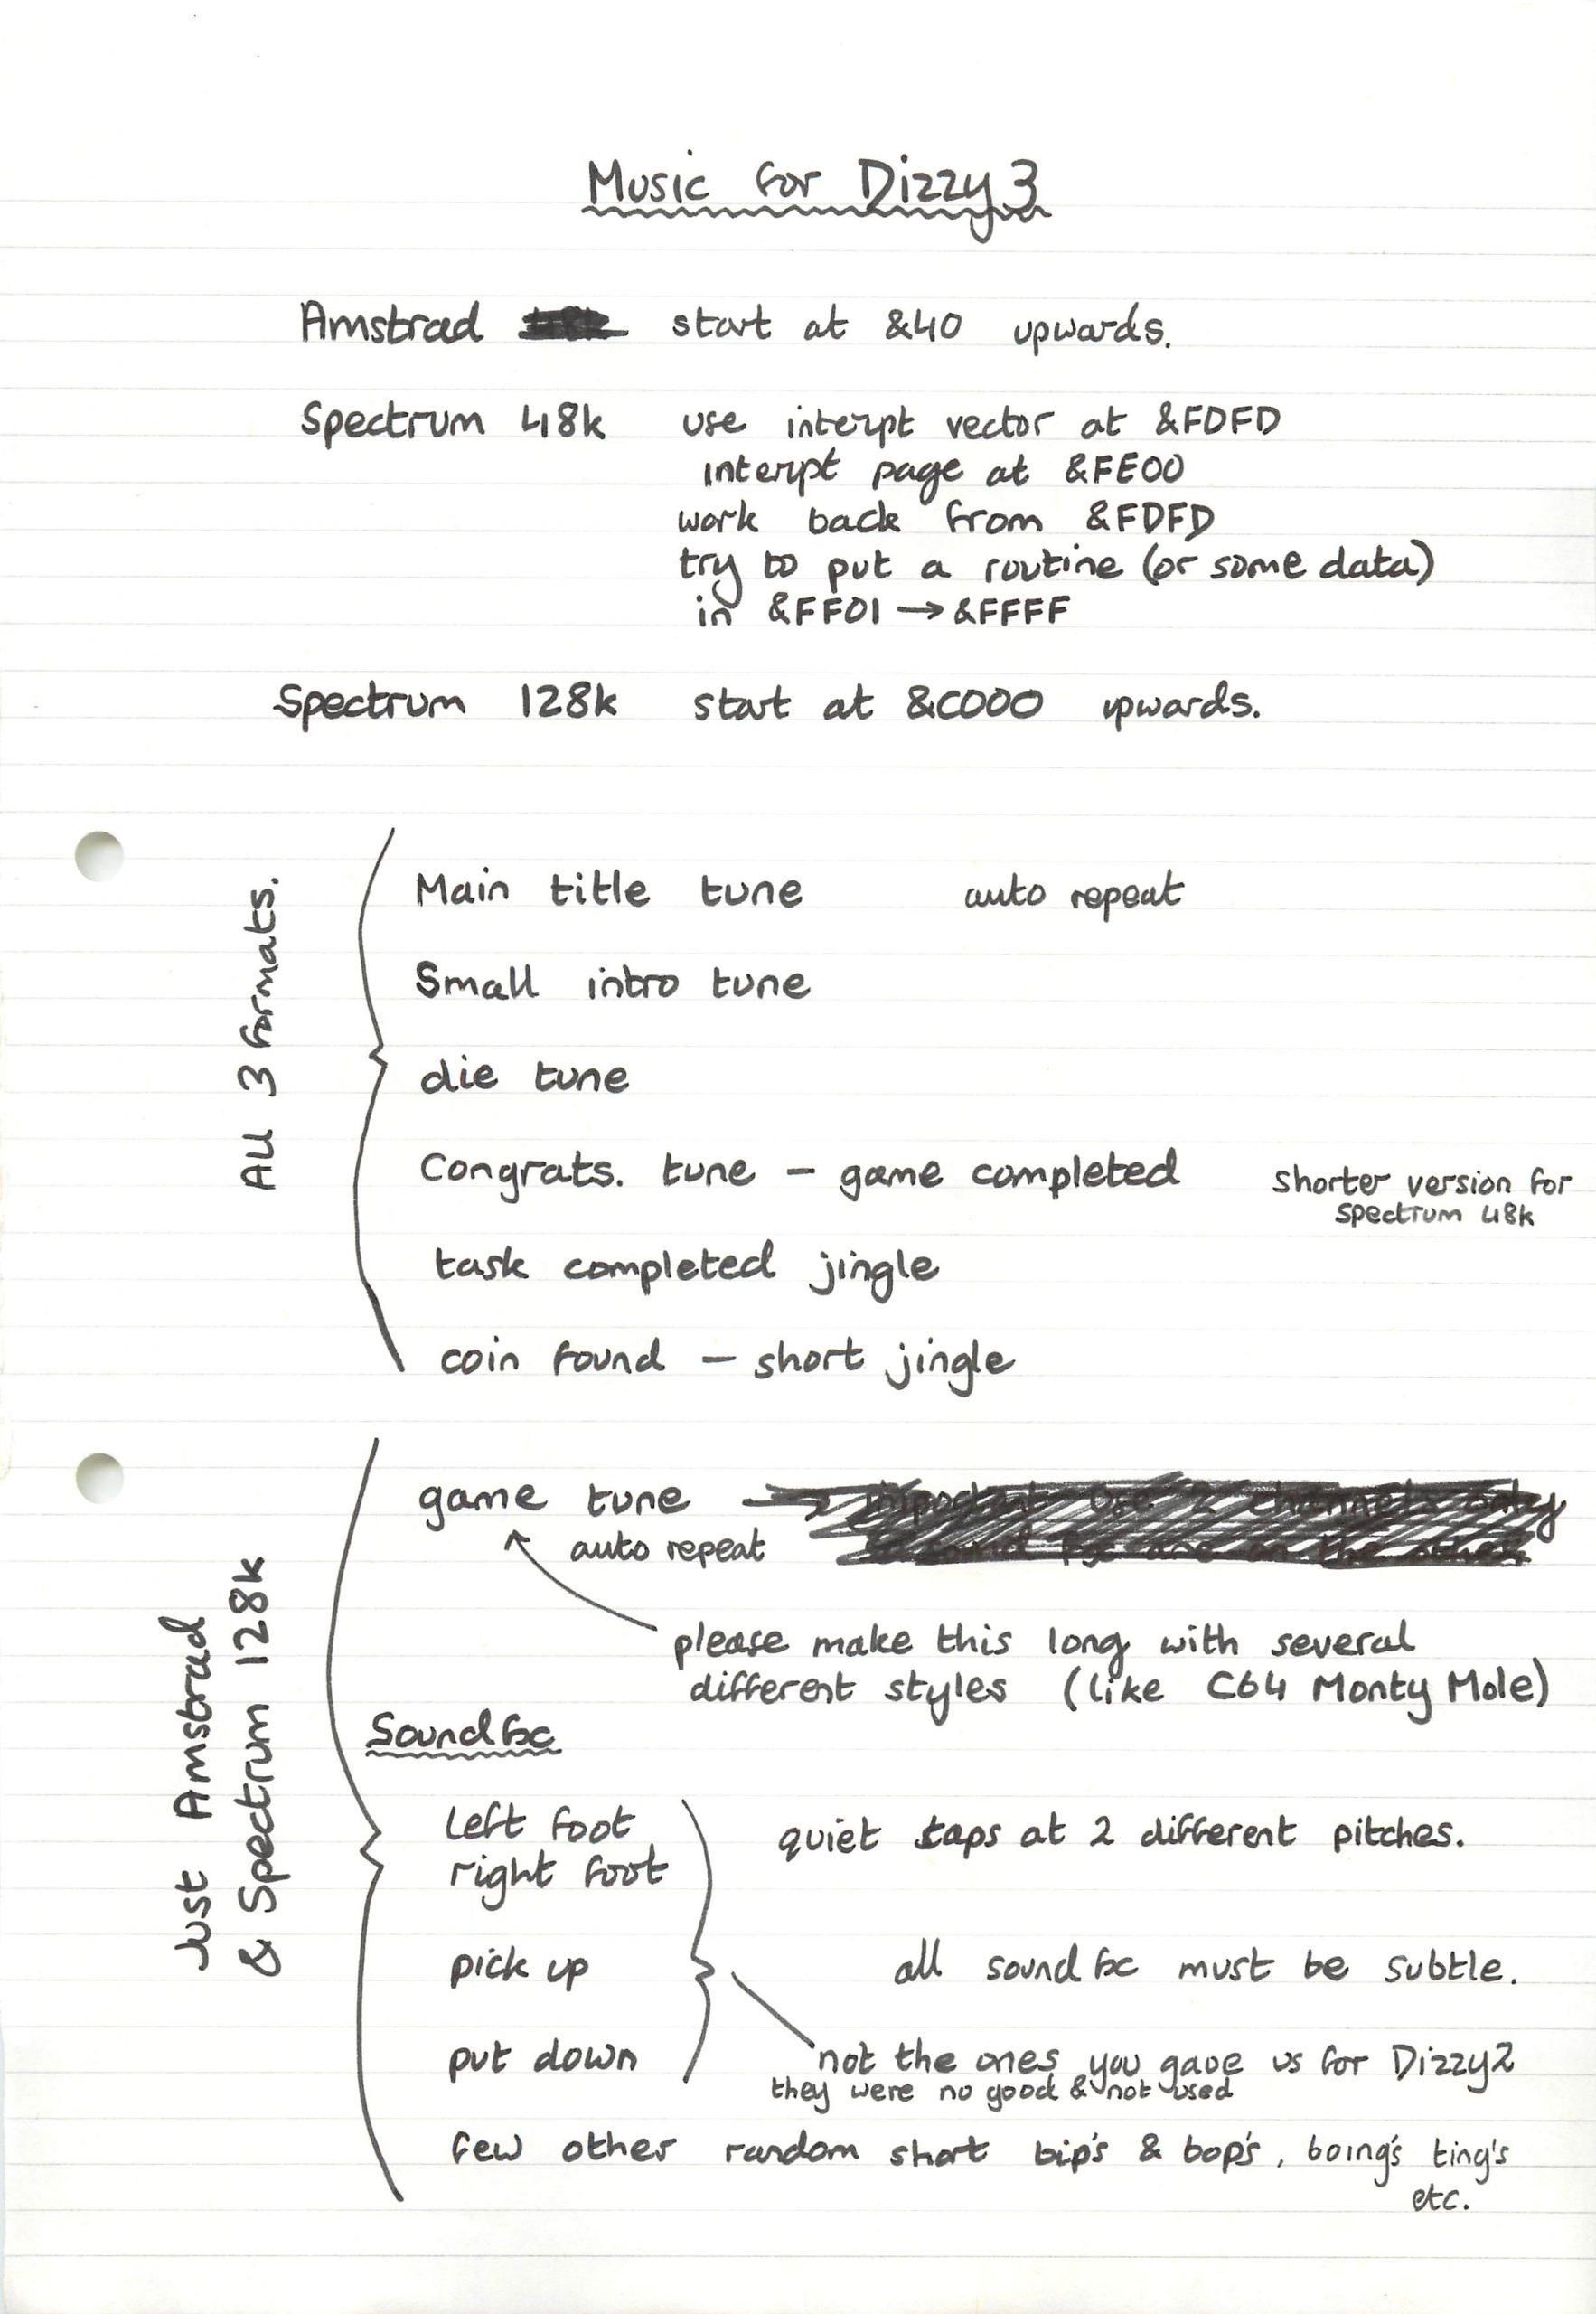 Music for Dizzy 3
Amstrad start at &40 upwards.
Spectrum 48k use interupt vector at &FDFD
interupt page at &FE00
work back from &FDFD
try to put a routine (or some data)
in &FF01 → &FFFF
Spectrum 128k start at &C000 upwards.
All 3 formats.
Main title tune auto repeat
Small intro tune
die tune
Congrats. tune – game completed shorter version for
spectrum 48k
task completed jingle
coin found – short jingle
Just Amstrad
& Spectrum 128k
game tune → important use 2 channels only
auto repeat
please make this long with several
different styles (like C64 Monty Mole)
Sound fx
left foot quiet taps at 2 different pitches.
right foot
pick up all sound fx must be subtle.
put down not the ones you gave us for Dizzy2
they were no good & not used
few other random short bip's & bop's, boing's ting's
etc.